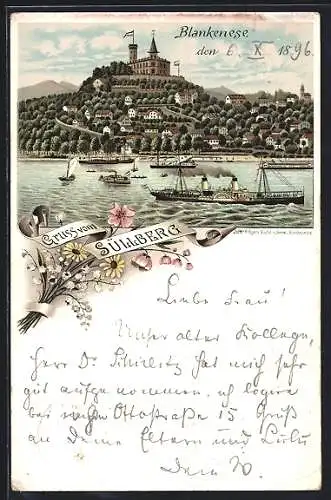 Blankenese
den 6. X. 1896
Gruss vom
SÜLLBERG
Liebe Frau!
Unser alter Kollege,
Herr Dr. hat mich sehr
gut aufgenommen, ich logire
bei Ottostraße 15. Gruß
an Deine Eltern und Lulu
Dein W.